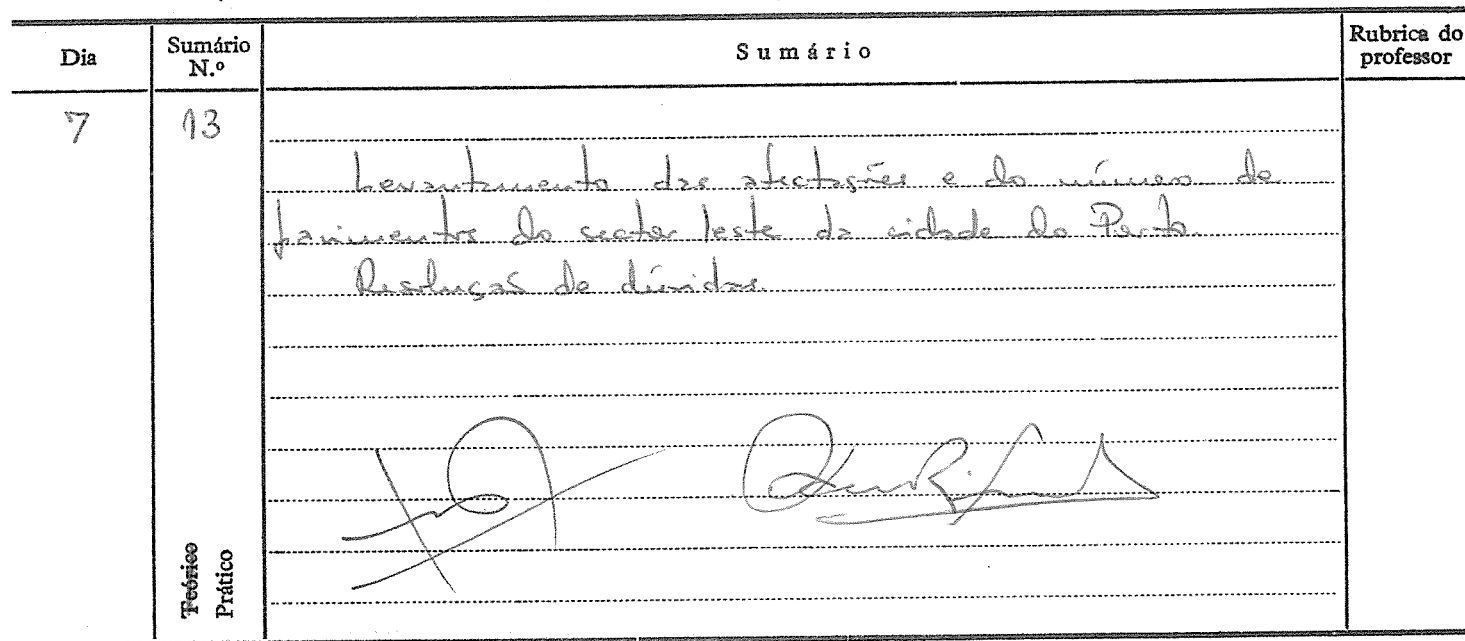 Dia
Sumário N.º
Sumário
Rubrica do professor
7
13
Levantamento das afectações e do número de
pavimentos do sector leste da cidade do Porto.
Resolução de dúvidas.
Teórico
Prático